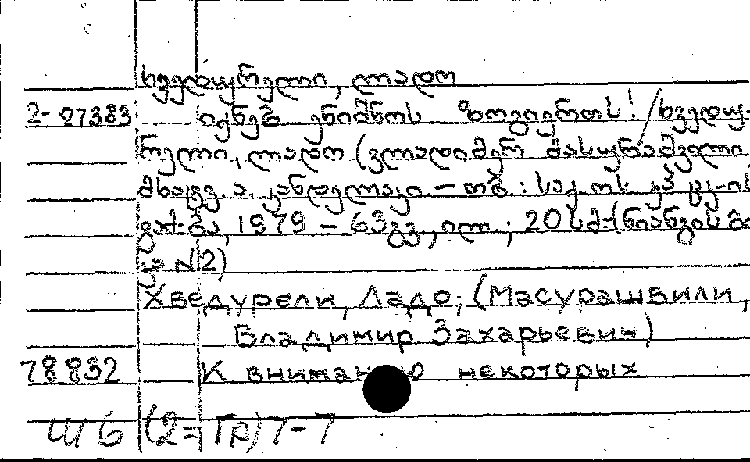 ხვედურელი, ლადო
2-07383 იქნებ ენიშნოს ზოგიერთს! / ხვედუ-
რელი, ლადო (ვლადიმერ მასურაშვილი
მხატვ. ა. კანდელაკი - თბ.: საქ. კპ ცკ-ის
გამ-ბა, 1979 - 63გვ., ილ.; 20სმ-(ნიანგის
N2)
Хведурели, Ладо; (Масурашвили,
Владимир Захарьевич)
78832 К вниманию некоторых
Ш6 (2=Гр)7-7